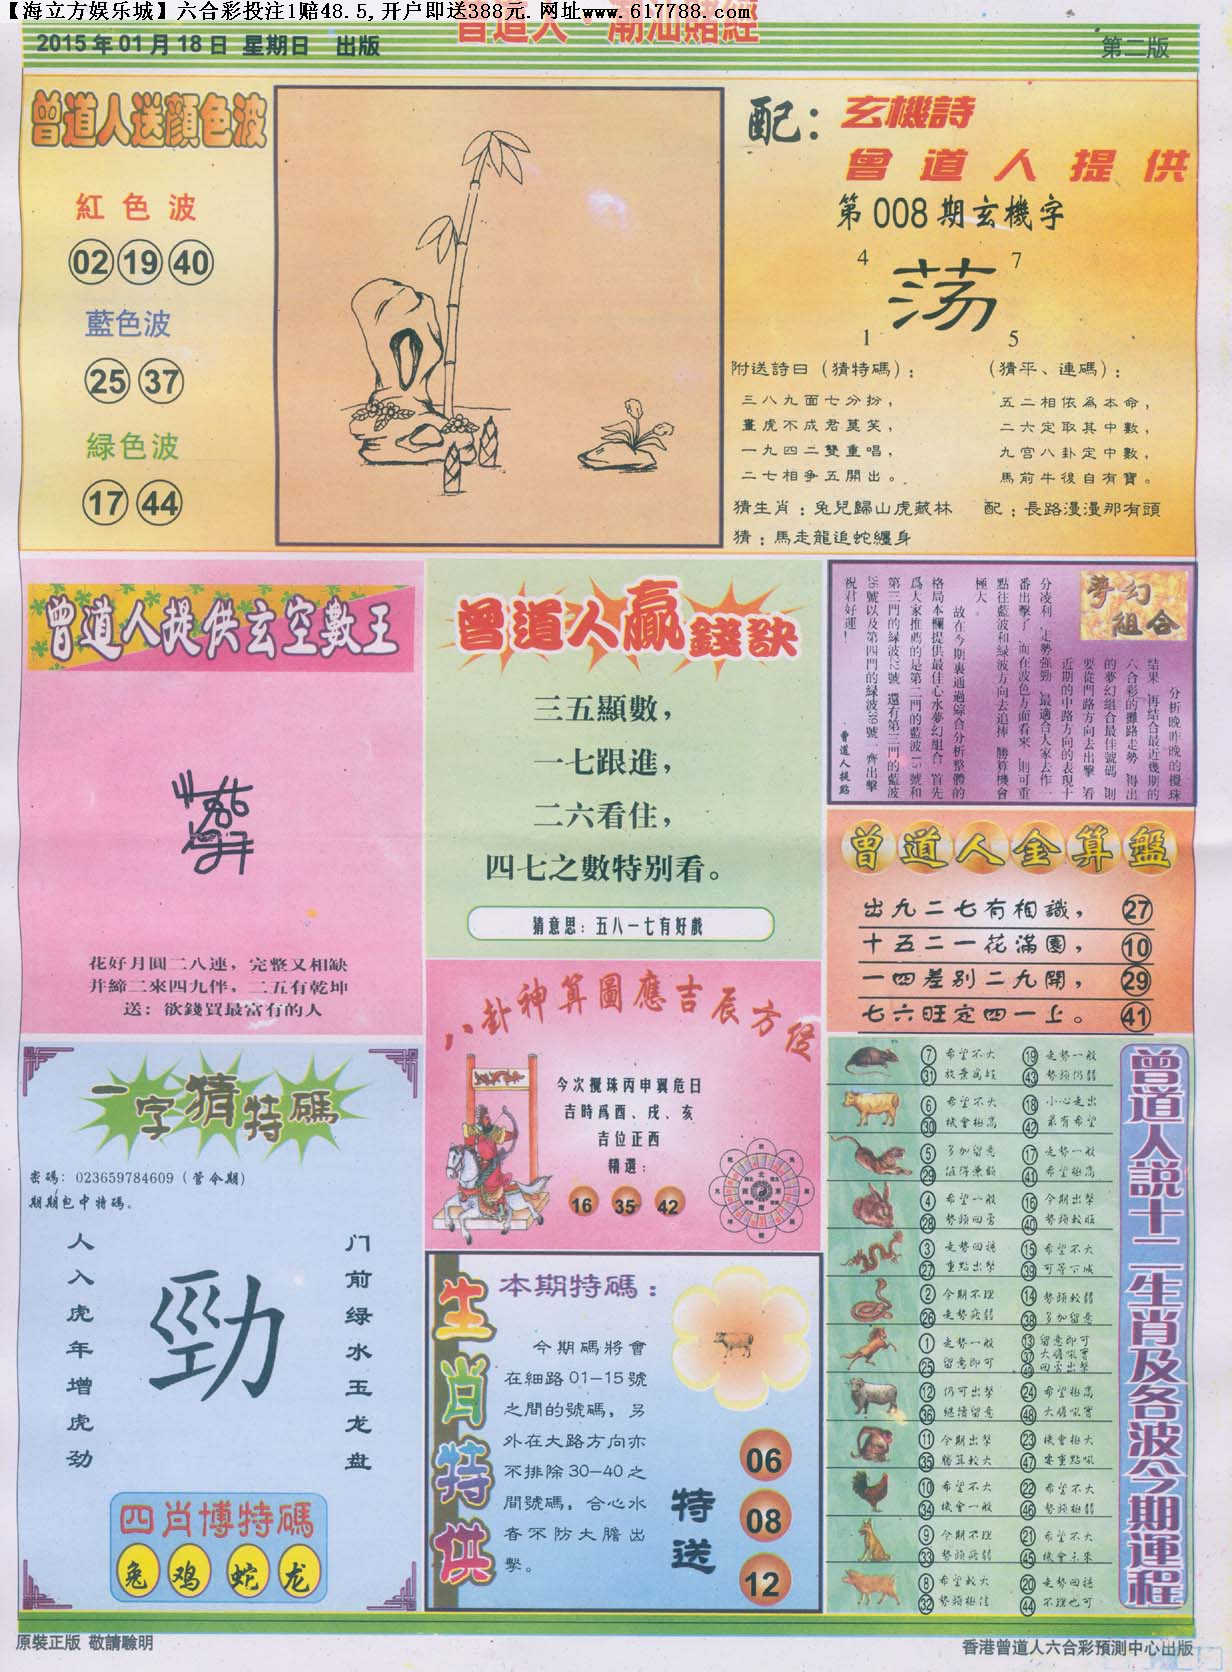 【海立方娱乐城】六合彩投注1赔48.5,开户即送388元.网址www.617788.com
曾道人·潮汕賭經
2015年01月18日 星期日 出版
第二版
曾道人送顔色波
紅色波
02 19 40
藍色波
25 37
緑色波
17 44
配：玄機詩
曾道人提供
第008期玄機字
4 7
荡
1 5
附送詩日（猜特碼）：
三八九面七分扮，
畫虎不成君莫笑，
一九四二雙重唱，
二七相争五開出。
（猜平、連碼）：
五二相依為本命，
二六定取其中數，
九宫八卦定中數，
馬前牛後自有寶。
猜生肖：兔兒歸山虎藏林
配：長路漫漫那有頭
猜：馬走龍追蛇纏身
曾道人提供玄空數王
花好月圓二八連，完整又相缺
并締二來四九伴，二五有乾坤
送：欲錢買最富有的人
曾道人贏錢訣
三五顯數，
一七跟進，
二六看住，
四七之數特别看。
猜意思：五八一七有好戲
夢幻組合
分析晚昨晚的攪珠
結果，再結合最近幾期的
六合彩的攤路走勢，得出
的夢幻組合最佳號碼，則
要從門路方向去出擊，看
近期的中路方向的表現十
分凌利，走勢強勁，最適合人家去作一
番出擊了，而在波色方面看來，則可重
點往藍波和緑波方向去追捧，勝算機會
極大。
故在今期裏通過綜合分析整體的
格局本欄提供最佳心水夢幻組合，首先
爲大家推薦的是第二門的藍波15號和
第三門的緑波22號，還有第三門的藍波
26號以及第四門的緑波39號一齊出擊，
祝君好運！
曾道人提點
曾道人金算盤
出九二七有相識， 27
十五二一花滿園， 10
一四差别二九開， 29
七六旺定四一上。 41
八卦神算圖應吉辰方位
今次攪珠丙申翼危日
吉時爲酉、戌、亥
吉位正西
精選：
16 35 42
一字猜特碼
密碼：023659784609（管令期）
期期包中特碼。
人入虎年增虎劲
勁
门前绿水玉龙盘
四肖博特碼
兔 鸡 蛇 龙
生肖特供
本期特碼：
今期碼將會
在細路01—15號
之間的號碼，另
外在大路方向亦
不排除30—40之
間號碼，合心水
者不防大膽出
擊。
特送
06
08
12
曾道人説十二生肖及各波今期運程
7 希望不大 19 走勢一般
31 放棄爲妙 43 勢頭仍弱
6 希望不大 18 小心走出
30 機會極高 42 最有希望
5 多加留意 17 走勢一般
29 值得兼顧 41 希望極高
4 希望一般 16 今期出擊
28 勢頭回雷 40 勢頭較旺
3 走勢回穩 15 希望不大
27 重點出擊 39 可等下城
2 今期不理 14 勢頭較弱
26 走勢疲弱 38 多加留意
1 走勢一般 13 留意即可
25 留意即可 37 大膽吼實
49 回雷出擊
12 仍可出擊 24 希望極高
36 繼續留意 48 大膽吼實
11 今期出擊 23 機會極大
35 勝算較大 47 要重點吼
10 希望不大 22 希望不大
34 機會一般 46 勢頭極弱
9 今期不理 21 希望不大
33 勢頭疲弱 45 機會未來
8 希望較大 20 走勢回穩
32 勢頭極佳 44 不理也可
原裝正版 敬請驗明
香港曾道人六合彩預測中心出版